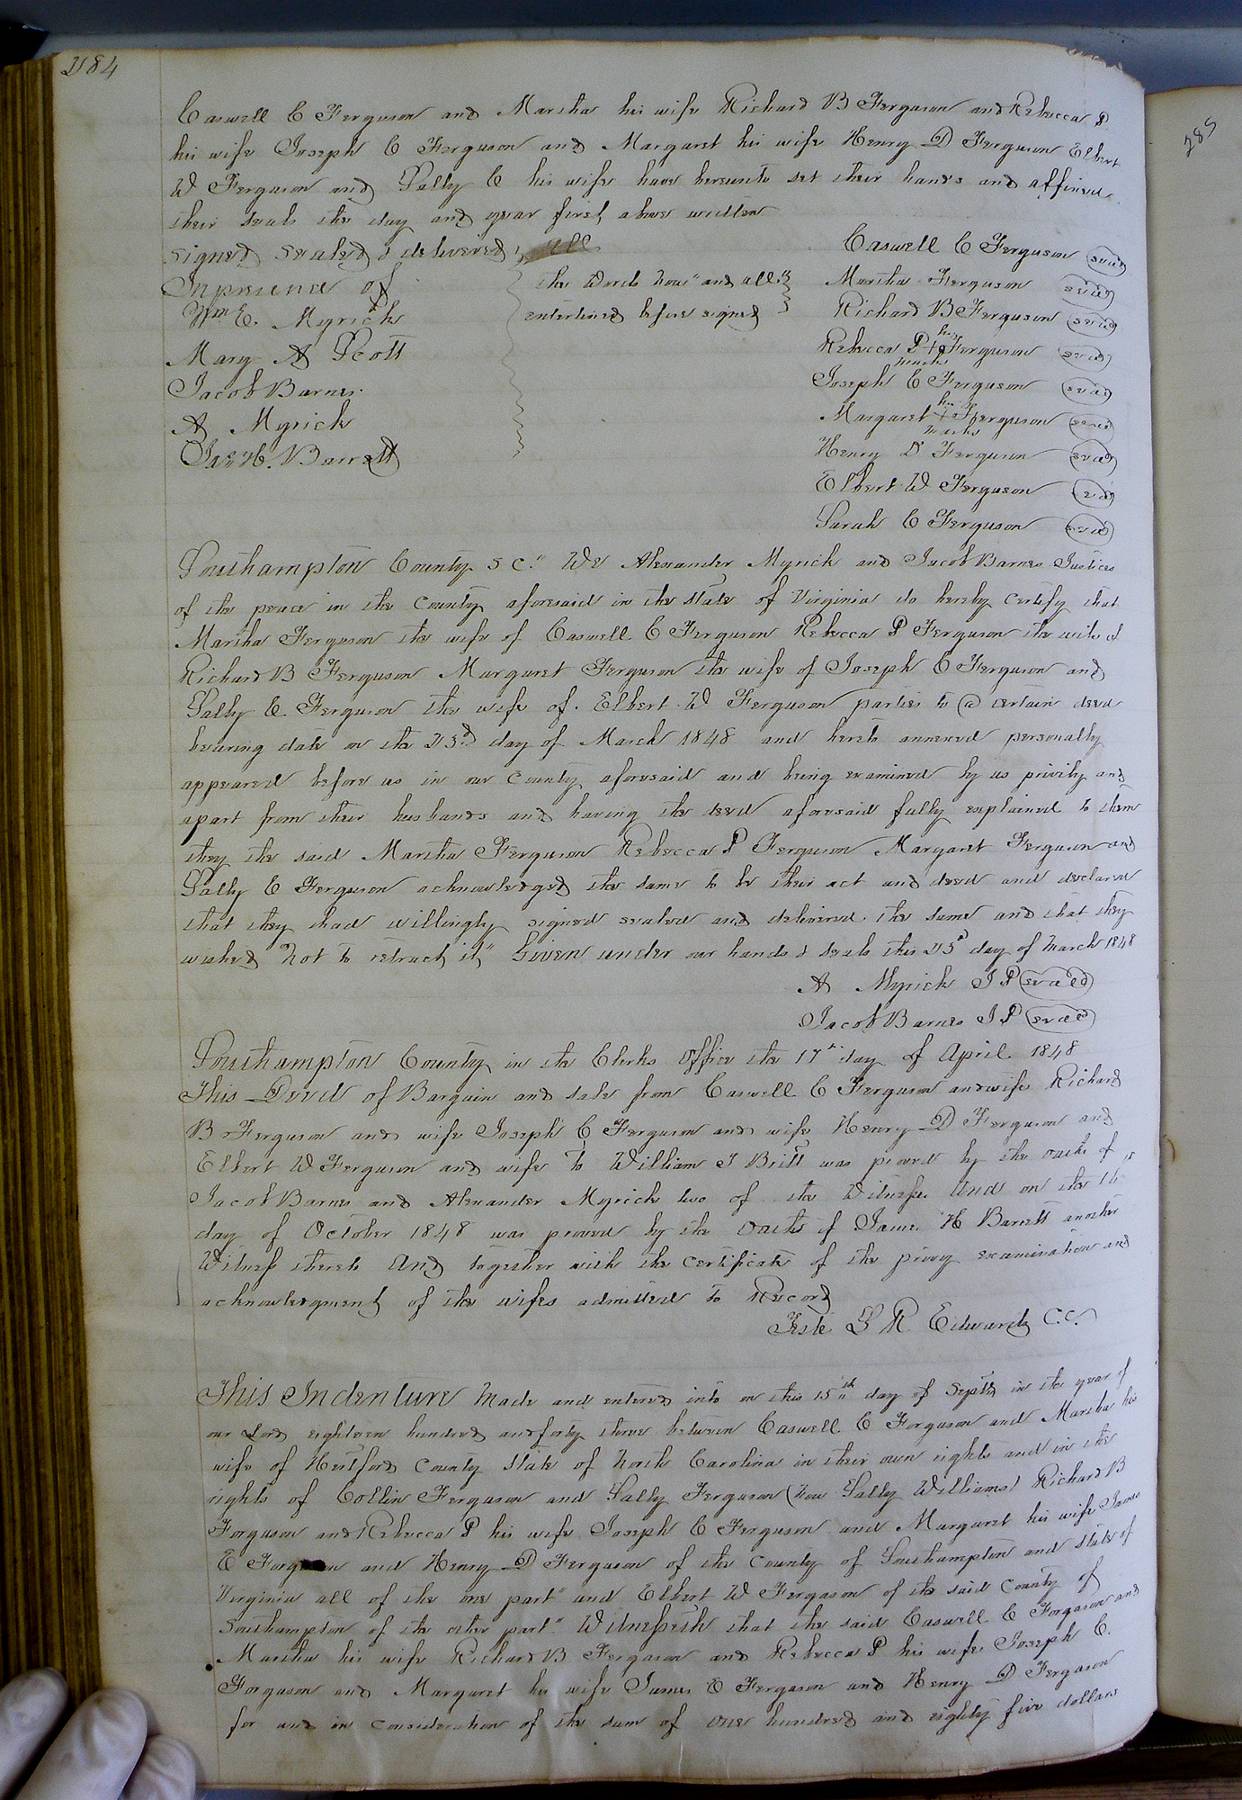 284
285
Caswell C Ferguson and Martha his wife Richard B Ferguson and Rebecca P
his wife Joseph C Ferguson and Margaret his wife Henry D Ferguson Elbert
W Ferguson and Sally C his wife have hereunto set their hands and affixed
their seals the day and year first above written
signed sealed & delivered
In presence of
Wm E. Myrick
Mary A Scott
Jacob Barnes
A Myrick
Jas H. Barrett
all
the words "now" and "all"
enterlined before signed
Caswell C Ferguson seal
Martha Ferguson seal
Richard B Ferguson seal
Rebecca P her + mark Ferguson seal
Joseph C Ferguson seal
Margaret her + mark Ferguson seal
Henry D Ferguson seal
Elbert W Ferguson seal
Sarah C Ferguson seal
Southampton County S C." We Alexander Myrick and Jacob Barnes Justices
of the peace in the County aforesaid in the State of Virginia do hereby certify that
Martha Ferguson the wife of Caswell C Ferguson Rebecca P Ferguson the wife of
Richard B Ferguson Margaret Ferguson the wife of Joseph C Ferguson and
Sally C. Ferguson the wife of Elbert W Ferguson parties to a certain deed
bearing date on the 23d day of March 1848 and hereto annexed personally
appeared before us in our County aforesaid and being examined by us privily and
apart from their husbands and having the deed aforesaid fully explained to them
they the said Martha Ferguson Rebecca P Ferguson Margaret Ferguson and
Sally C Ferguson acknowledged the same to be their act and deed and declared
that they had willingly signed sealed and delivered the same and that they
wished not to retract it" Given under our hands & seals this 23d day of March 1848
A Myrick J P sealed
Jacob Barnes J P seal
Southampton County in the Clerks Office the 17th day of April 1848
This Deed of Bargain and sale from Caswell C Ferguson and wife Richard
B Ferguson and wife Joseph C Ferguson and wife Henry D Ferguson and
Elbert W Ferguson and wife to William J Britt was proved by the oaths of
Jacob Barnes and Alexander Myrick two of the Witnesses And on the 16
day of October 1848 was proved by the oath of James H Barrett another
Witness thereto And together with the certificate of the privy examination and
acknowledgment of the wifes admitted to Record
Teste L R Edwards C.C.
This Indenture Made and entered into on this 15th day of Septr in the year of
our Lord eighteen hundred and forty three between Caswell C Ferguson and Martha his
wife of Hertford County State of North Carolina in their own rights and in the
rights of Collin Ferguson and Sally Ferguson (now Sally Williams) Richard B
Ferguson and Rebecca P his wife Joseph C Ferguson and Margaret his wife James
E Ferguson and Henry D Ferguson of the County of Southampton and State of
Virginia all of the one part" and Elbert W Ferguson of the said County of
Southampton of the other part" Witnesseth that the said Caswell C Ferguson and
Martha his wife Richard B Ferguson and Rebecca P his wife Joseph C.
Ferguson and Margaret his wife James E Ferguson and Henry D Ferguson
for and in consideration of the sum of one hundred and eighty five dollars